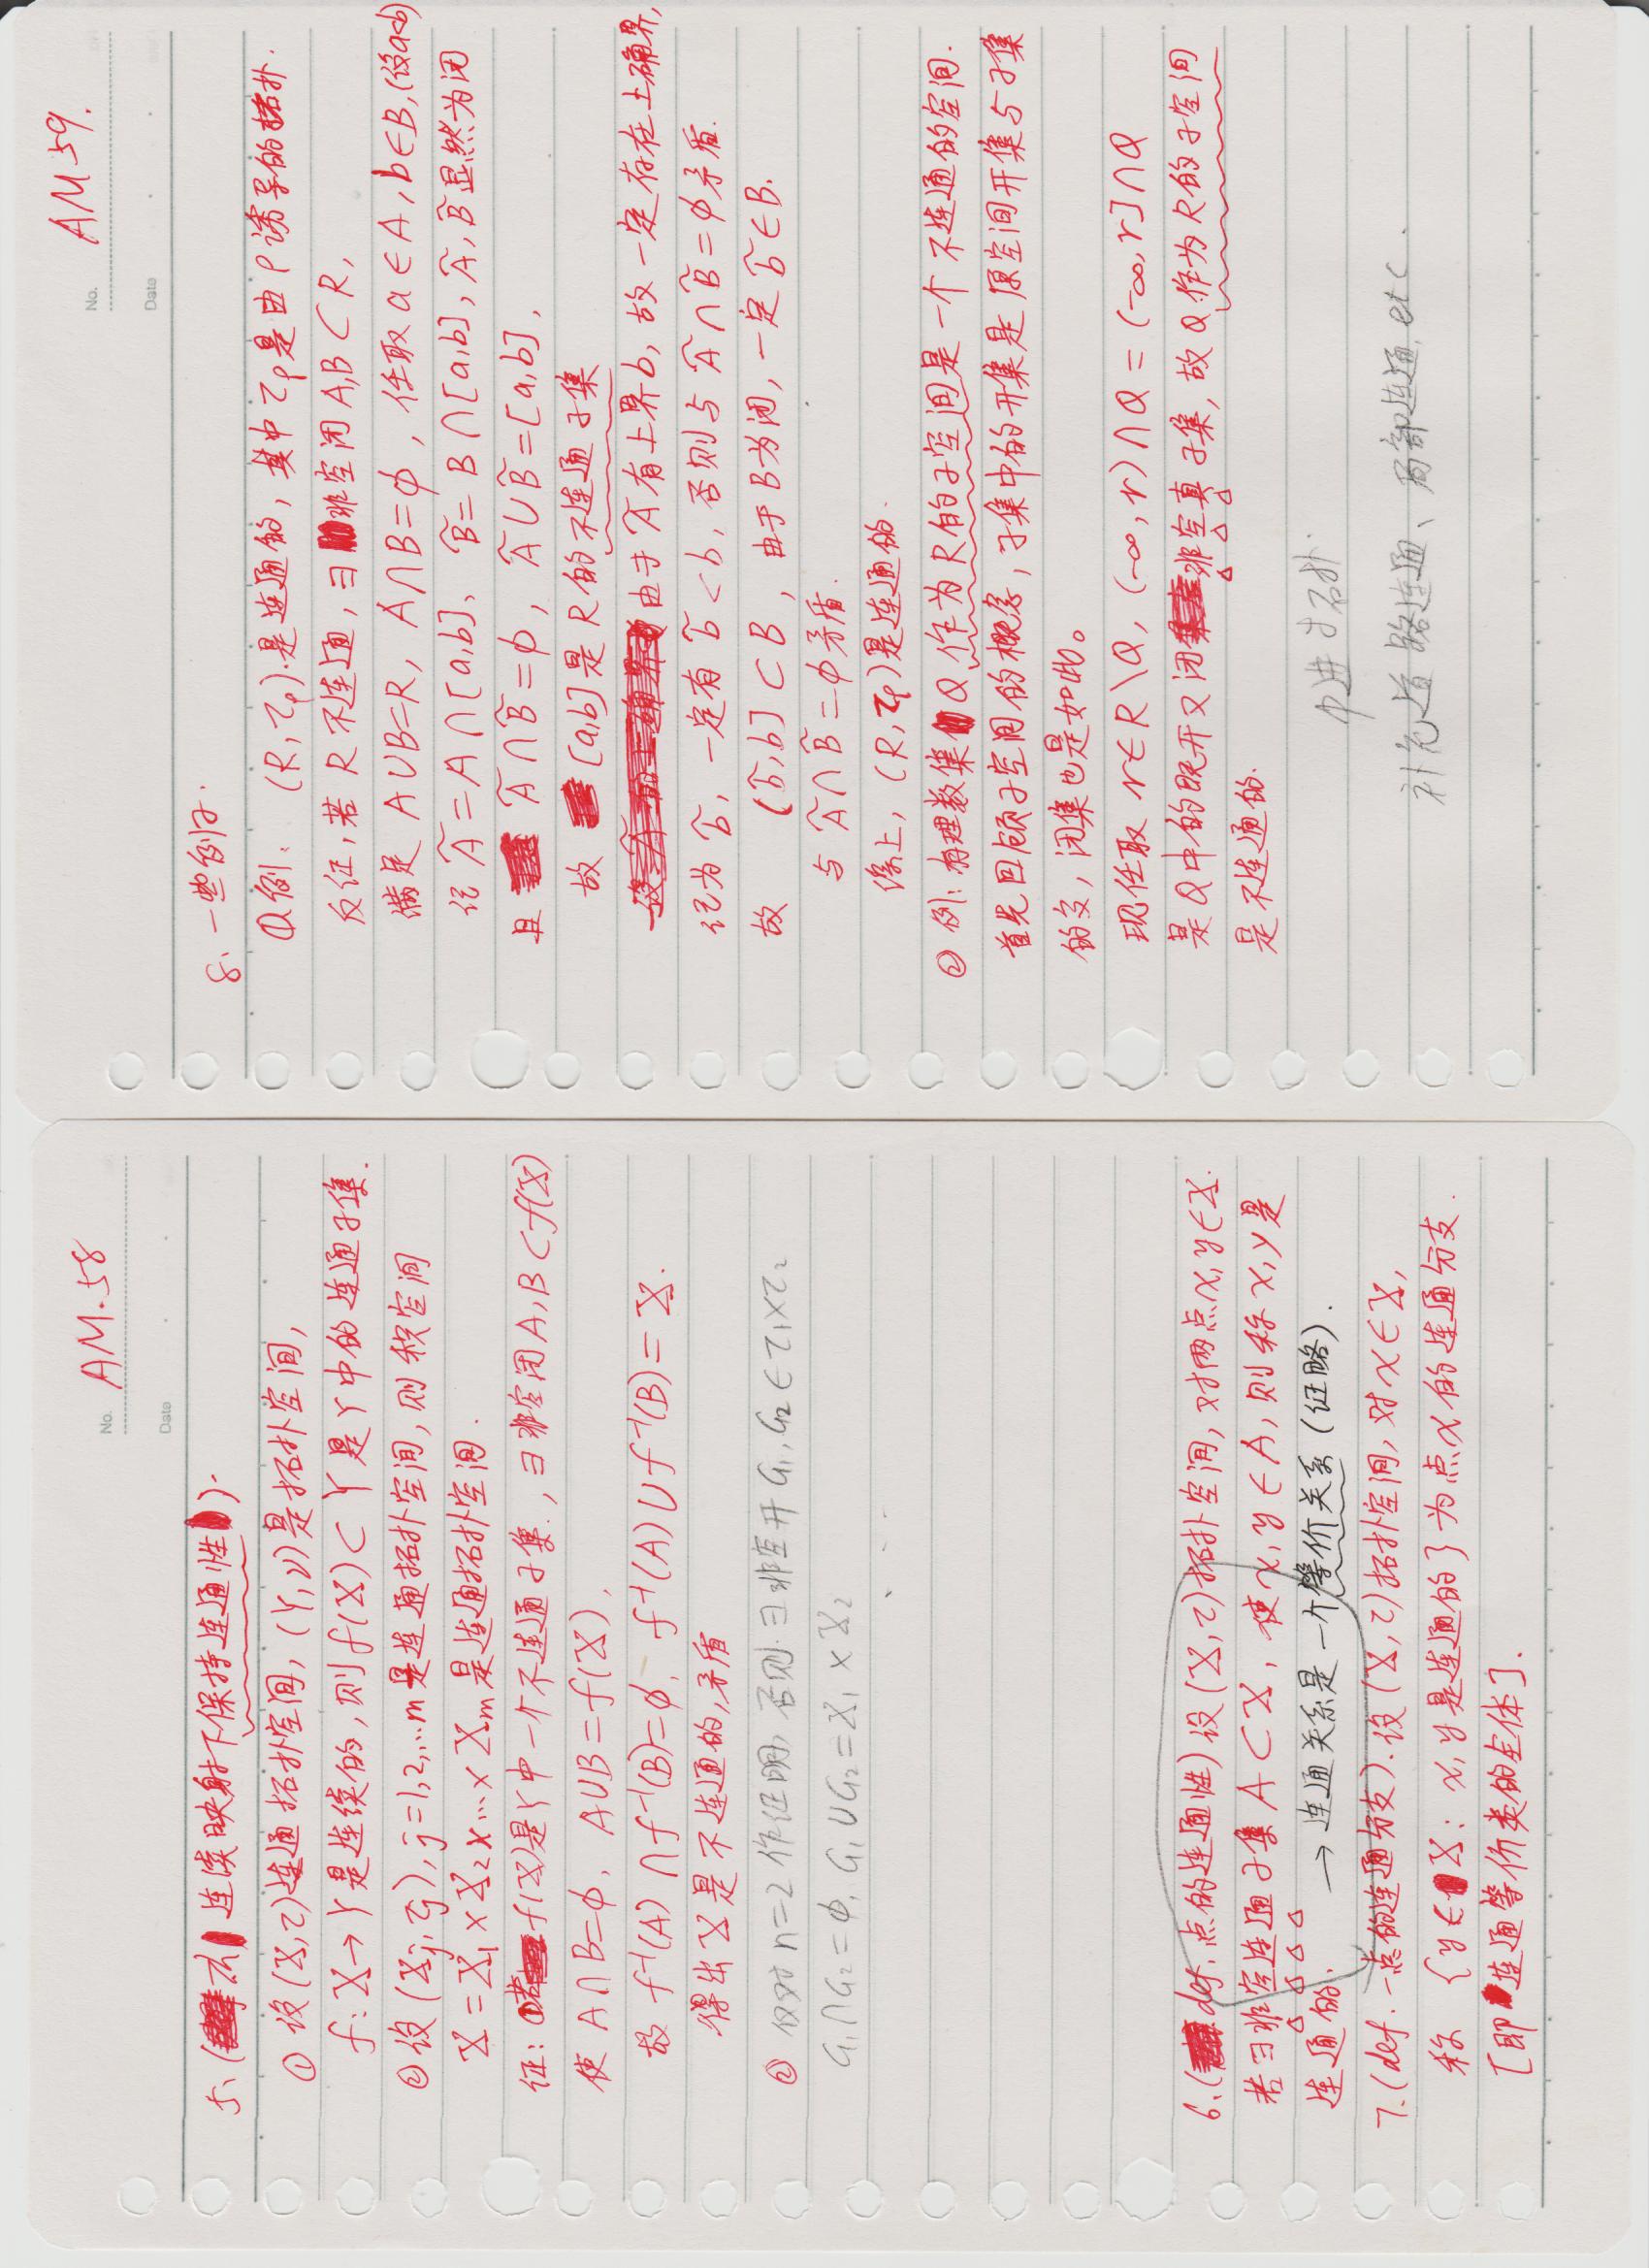 No. AM.58
Date
5、(连续映射下保持连通性).
① 设(X,τ)连通拓扑空间, (Y,ν)是拓扑空间,
f: X→Y是连续的, 则f(X)⊂Y是Y中的连通子集.
② 设(Xj,τj), j=1,2,...m是连通拓扑空间, 则积空间
X=X₁×X₂×...×Xm是连通拓扑空间.
证: ①若f(X)是Y中一个不连通子集, ∃非空闭A,B⊂f(X)
使 A∩B=ϕ, A∪B=f(X),
故 f⁻¹(A)∩f⁻¹(B)=ϕ, f⁻¹(A)∪f⁻¹(B)=X.
得出X是不连通的,矛盾
② 仅对n=2作证明, 否则∃非空开G₁,G₂∈τ₁×τ₂
G₁∩G₂=ϕ, G₁∪G₂=X₁×X₂
6、(def. 点的连通性) 设(X,τ)拓扑空间, 对两点x,y∈X.
若∃非空连通子集A⊂X, 使x,y∈A, 则称x,y是
连通的. →连通关系是一个等价关系 (证略).
7.(def. 一点的连通分支). 设(X,τ)拓扑空间, 对x∈X,
称 {y∈X: x,y是连通的}为点x的连通分支.
[即连通等价类的全体].
No. AM59.
Date
8、一些例子.
①例. (R,τρ)是连通的, 其中τρ是由ρ诱导的拓扑.
反证, 若R不连通, ∃非空闭A,B⊂R,
满足 A∪B=R, A∩B=ϕ, 任取a∈A, b∈B,(设a<b)
记Ã=A∩[a,b]、B̃=B∩[a,b], Ã,B̃显然为闭
且 Ã∩B̃=ϕ, Ã∪B̃=[a,b],
故 [a,b]是R的不连通子集
由于Ã有上界b, 故一定存在上确界,
记为b̃, 一定有b̃<b, 否则与Ã∩B̃=ϕ矛盾.
故 (b̃,b]⊂B, 由于B为闭, 一定b̃∈B.
与Ã∩B̃=ϕ矛盾.
综上, (R,τρ)是连通的.
② 例: 有理数集Q作为R的子空间是一个不连通的空间.
首先回顾子空间的概念, 子集中的开集是原空间开集与子集
的交, 闭集也是如此。
现任取r∈R\Q, (-∞,r)∩Q=(-∞,r]∩Q
是Q中的既开又闭非空真子集, 故Q作为R的子空间
是不连通的.
拓扑.
补充道路连通、局部连通, etc.